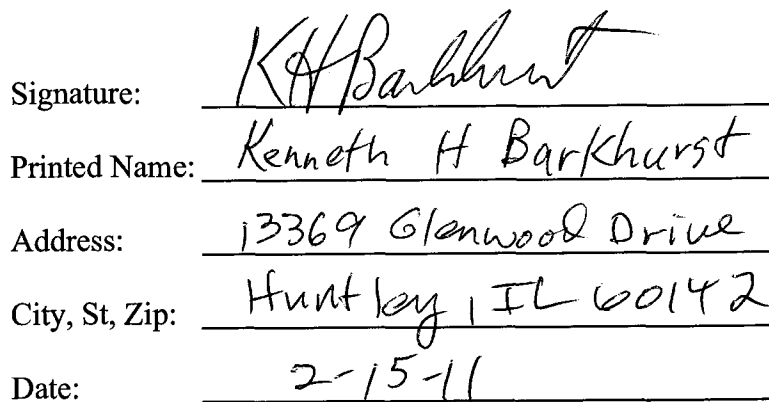 Signature: KHBarkhurst
Printed Name: Kenneth H Barkhurst
Address: 13369 Glenwood Drive
City, St, Zip: Huntley, IL 60142
Date: 2-15-11